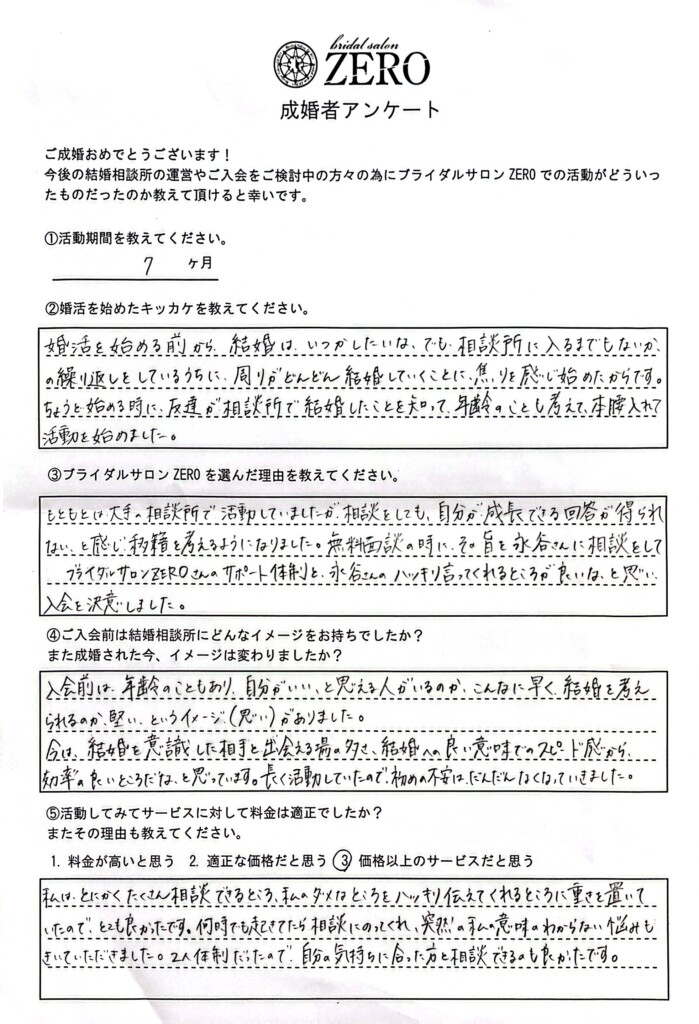 bridal salon
ZERO
成婚者アンケート
ご成婚おめでとうございます！
今後の結婚相談所の運営やご入会をご検討中の方々の為にブライダルサロン ZERO での活動がどういっ
たものだったのか教えて頂けると幸いです。
①活動期間を教えてください。
7 ヶ月
②婚活を始めたキッカケを教えてください。
婚活を始める前から、結婚は、いつかしたいな、でも、相談所に入るまでもないか、
の繰り返しをしているうちに、周りがどんどん結婚していくことに、焦りを感じ始めたからです。
ちょうど始める時に、友達が相談所で結婚したことを知って、年齢のことも考えて、本腰入れて
活動を始めました。
③ブライダルサロン ZERO を選んだ理由を教えてください。
もともとは大手の相談所で活動していましたが、相談をしても、自分が成長できる回答が得られ
ない、と感じ移籍を考えるようになりました。無料面談の時に、その旨を永谷さんに相談をして
ブライダルサロンZEROさんのサポート体制と、永谷さんのハッキリ言ってくれるところが良いな、と思い、
入会を決意しました。
④ご入会前は結婚相談所にどんなイメージをお持ちでしたか？
また成婚された今、イメージは変わりましたか？
入会前は、年齢のこともあり、自分がいい、と思える人がいるのか、こんなに早く、結婚を考え
られるのか、堅い、というイメージ(思い)がありました。
今は、結婚を意識した相手と出会える場の多さ、結婚への良い意味でのスピード感から、
効率の良いところだな、と思っています。長く活動していたので、初めの不安は、だんだんなくなっていきました。
⑤活動してみてサービスに対して料金は適正でしたか？
またその理由も教えてください。
1. 料金が高いと思う 2. 適正な価格だと思う ③ 価格以上のサービスだと思う
私は、とにかくたくさん相談できるところ、私のダメなところをハッキリ伝えてくれるところに重きを置いて
いたので、とても良かったです。何時でも起きてたら相談にのってくれ、突然の私の意味のわからない悩みも
きいていただきました。2人体制だったので、自分の気持ちに合った方と相談できるのも良かったです。